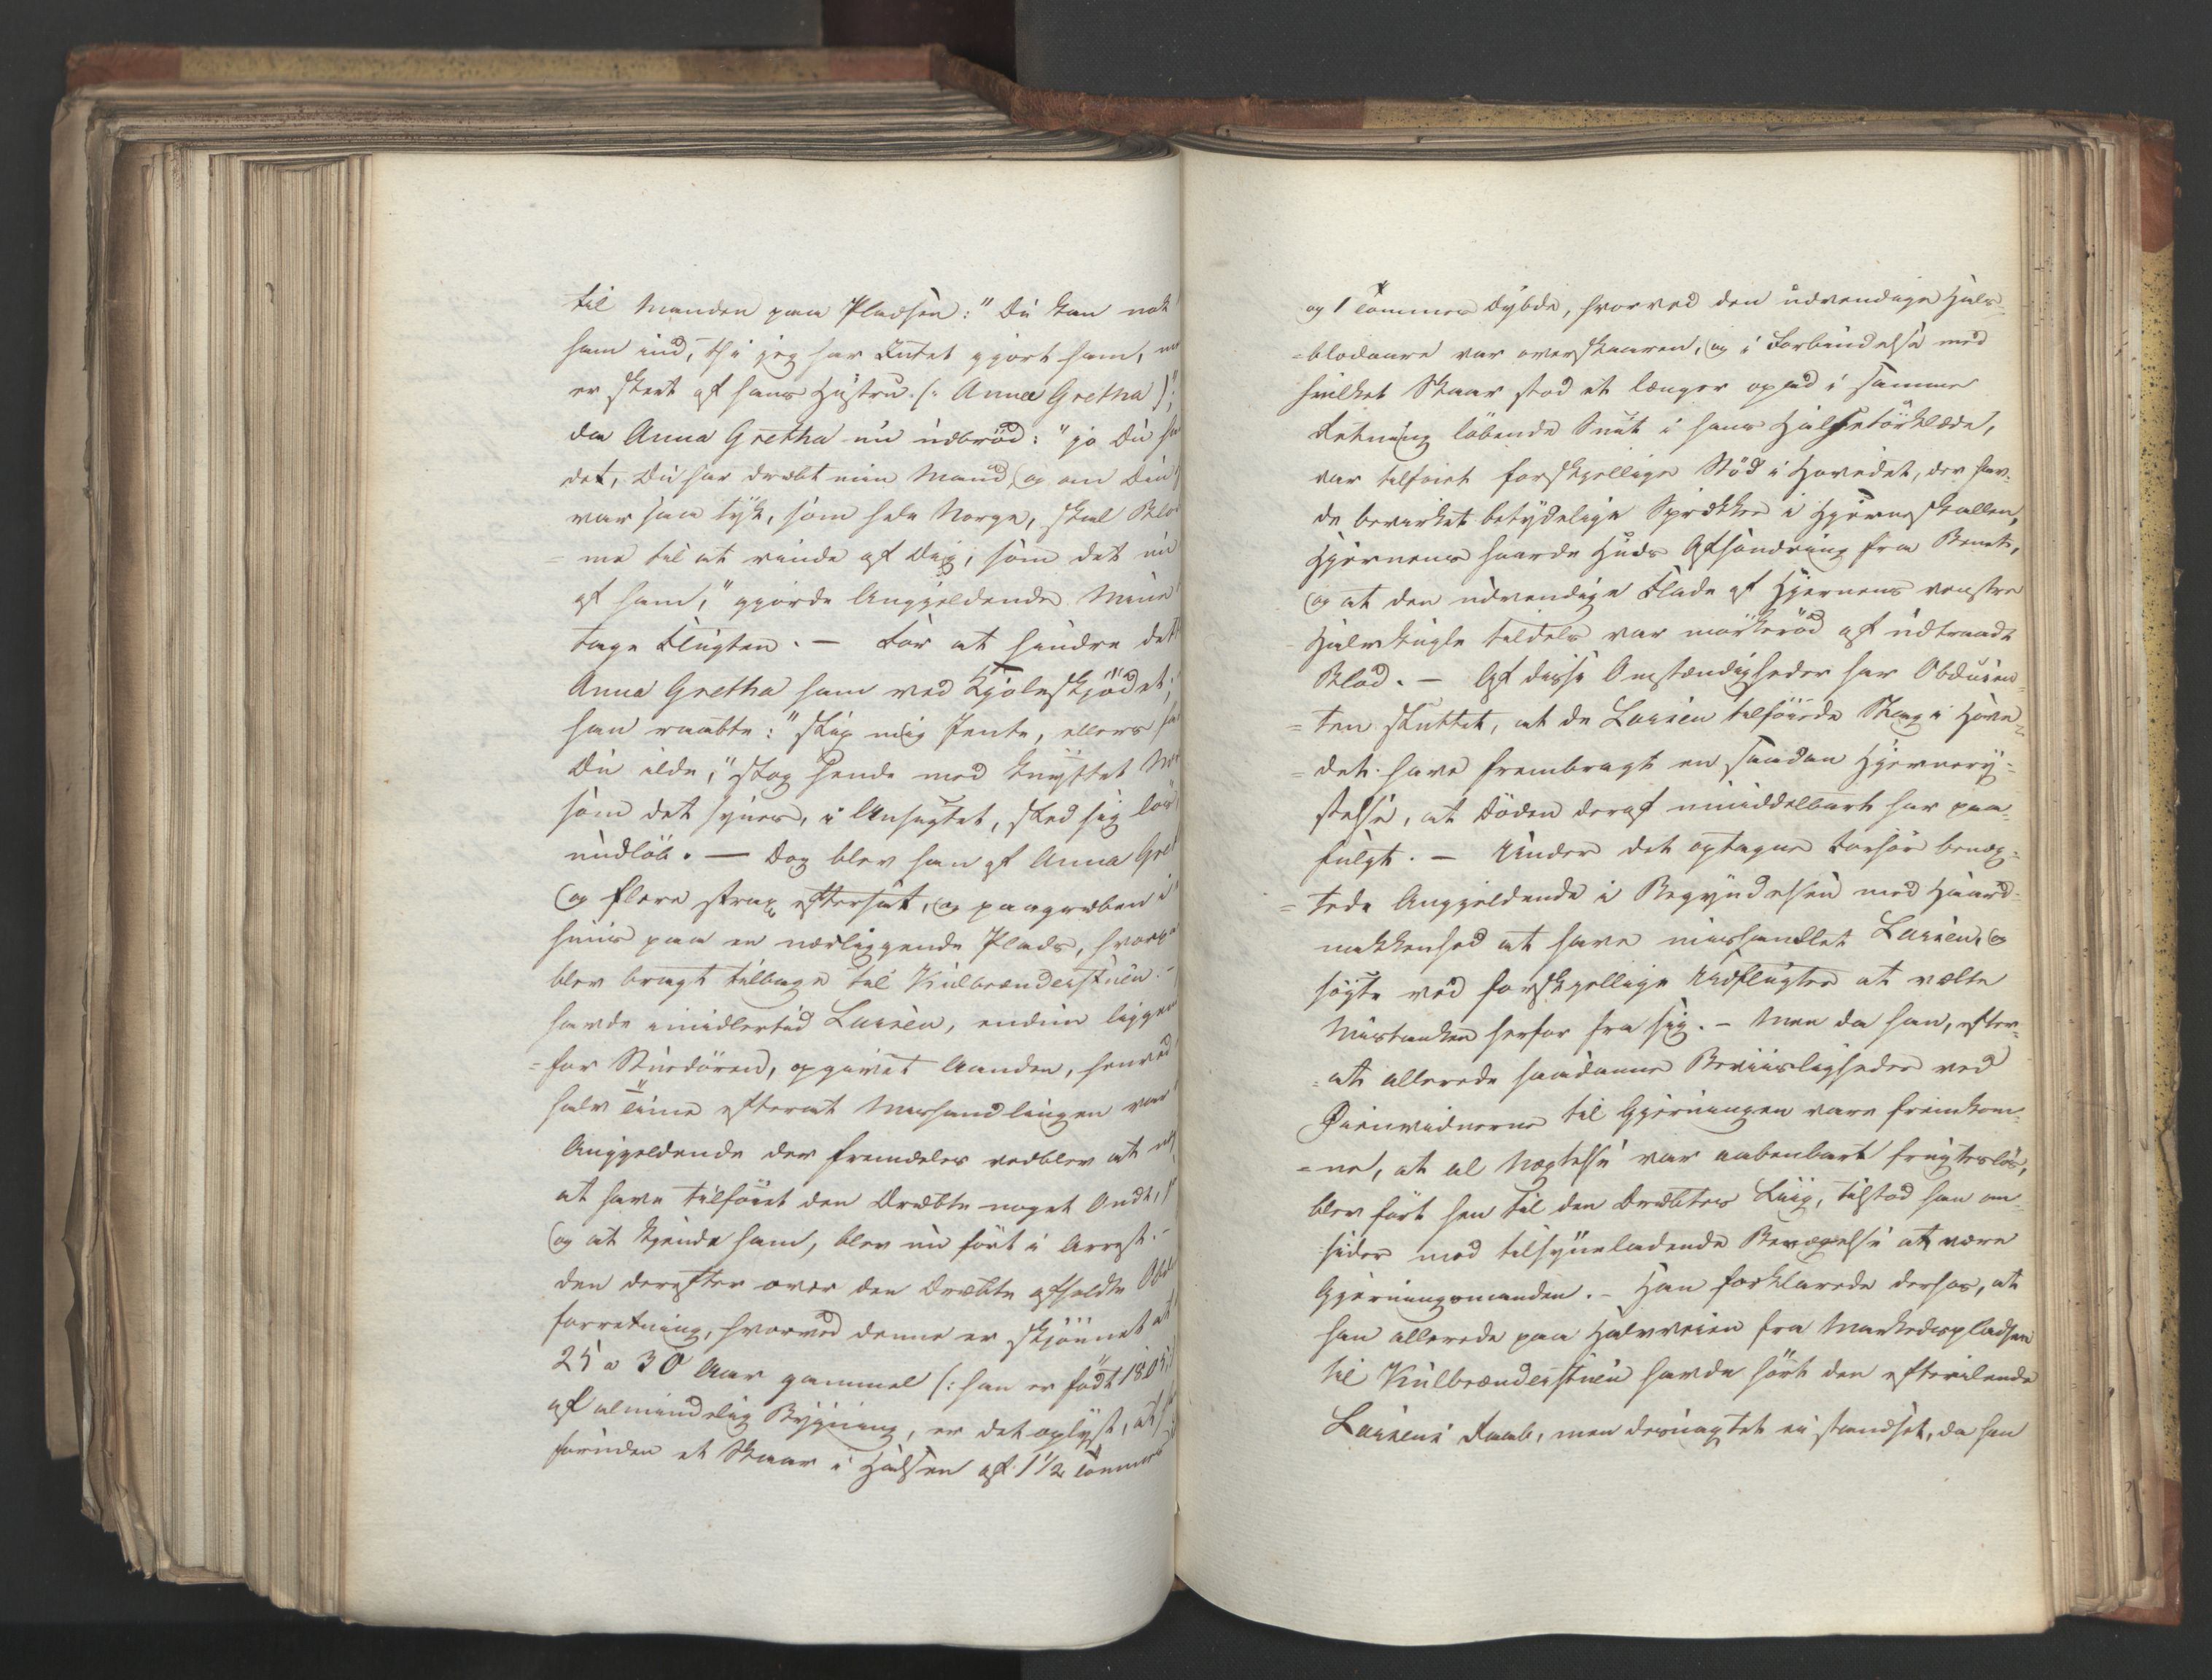 til Manden paa Pladsen: "Du kan nok
ham ind, thi jeg har Intet gjort ham, m
er skeet af hans Hustru (: Anna Gretha );"
da Anna Gretha nu udbröd: "jo Du ha
det, Du har dræbt min Mand, og om Din
var saa tyk, som hele Norge, skal Blo
= me til at rinde af Dig, som det nu
af ham," gjorde Angjeldende Mine
tage Flugten. — For at hindre dett
Anna Gretha ham ved Kjoleskjödet;
han raabte: "slip mig Jente, ellers fa
Du ilde," slog hende med knyttet Næ
som det synes, i Ansigtet, sled sig lös
undlöb. — Dog blev han af Anna Gret
og flere strax eftersat, og paagreben i
huus paa en nærliggende Plads, hvorpa
blev bragt tilbage til Kulbrænderstuen. -
havde imidlertid Larsen, endnu liggen
= for Stuedören, opgivet Aanden, henved
halv Time efterat Mishandlingen var
Angjeldende der fremdeles vedblev at næ
at have tilföiet den Dræbte noget Ondt,
og at kjende ham, blev nu fört i Arrest. -
den derefter over den Dræbte afholdte Obdu
forretning, hvorved denne er skjönnet at
25 a 30 Aar gammel (: han er födt 1805
af almindelig Bygning, er det oplyst, at
foruden et Skaar i Halsen af 1½ Tommes
og 1 Tommes Dybde, hvorved den udvendige Hals-
= blodaare var overskaaren, og i Forbindelse med
hvilket Skaar stod et længer opad i samme
Retning löbende Snit i hans Halstörklæde,
var tilföiet forskjellige Stöd i Hovedet, der hav-
de bevirket betydelige Sprækker i Hjerneskallen,
Hjernens haarde Huds Afsöndring fra Benet,
og at den udvendige Flade af Hjernens venstre
Halvkugle tildels var mörkeröd af udtraadt
Blod. — Af disse Omstændigheder har Obducen-
= ten sluttet, at de Larsen tilföiede Slag i Hove-
= det have frembragt en saadan Hjernery-
stelse, at Döden deraf umiddelbart har paa-
fulgt. — Under det optagne Forhör benæg-
= tede Angjeldende i Begyndelsen med Haard-
nakkenhed at have mishandlet Larsen, og
sögte ved forskjellige Udflugter at vælte
Mistanken herfor fra sig. - Men da han, efter-
= at allerede saadanne Beviisligheder ved
Öienvidnerne til Gjerningen vare fremkom-
= ne, at al Nægtelse var aabenbart frugteslös,
blev fört hen til den Dræbtes Liig, tilstod han om-
sider med tilsyneladende Bevægelse at være
Gjerningsmanden. - Han forklarede derhos, at
han allerede paa Halvveien fra Markedspladsen
til Kulbrænderstuen havde hört den efterilende
Larsens Raab, men desuagtet ei standset, da han